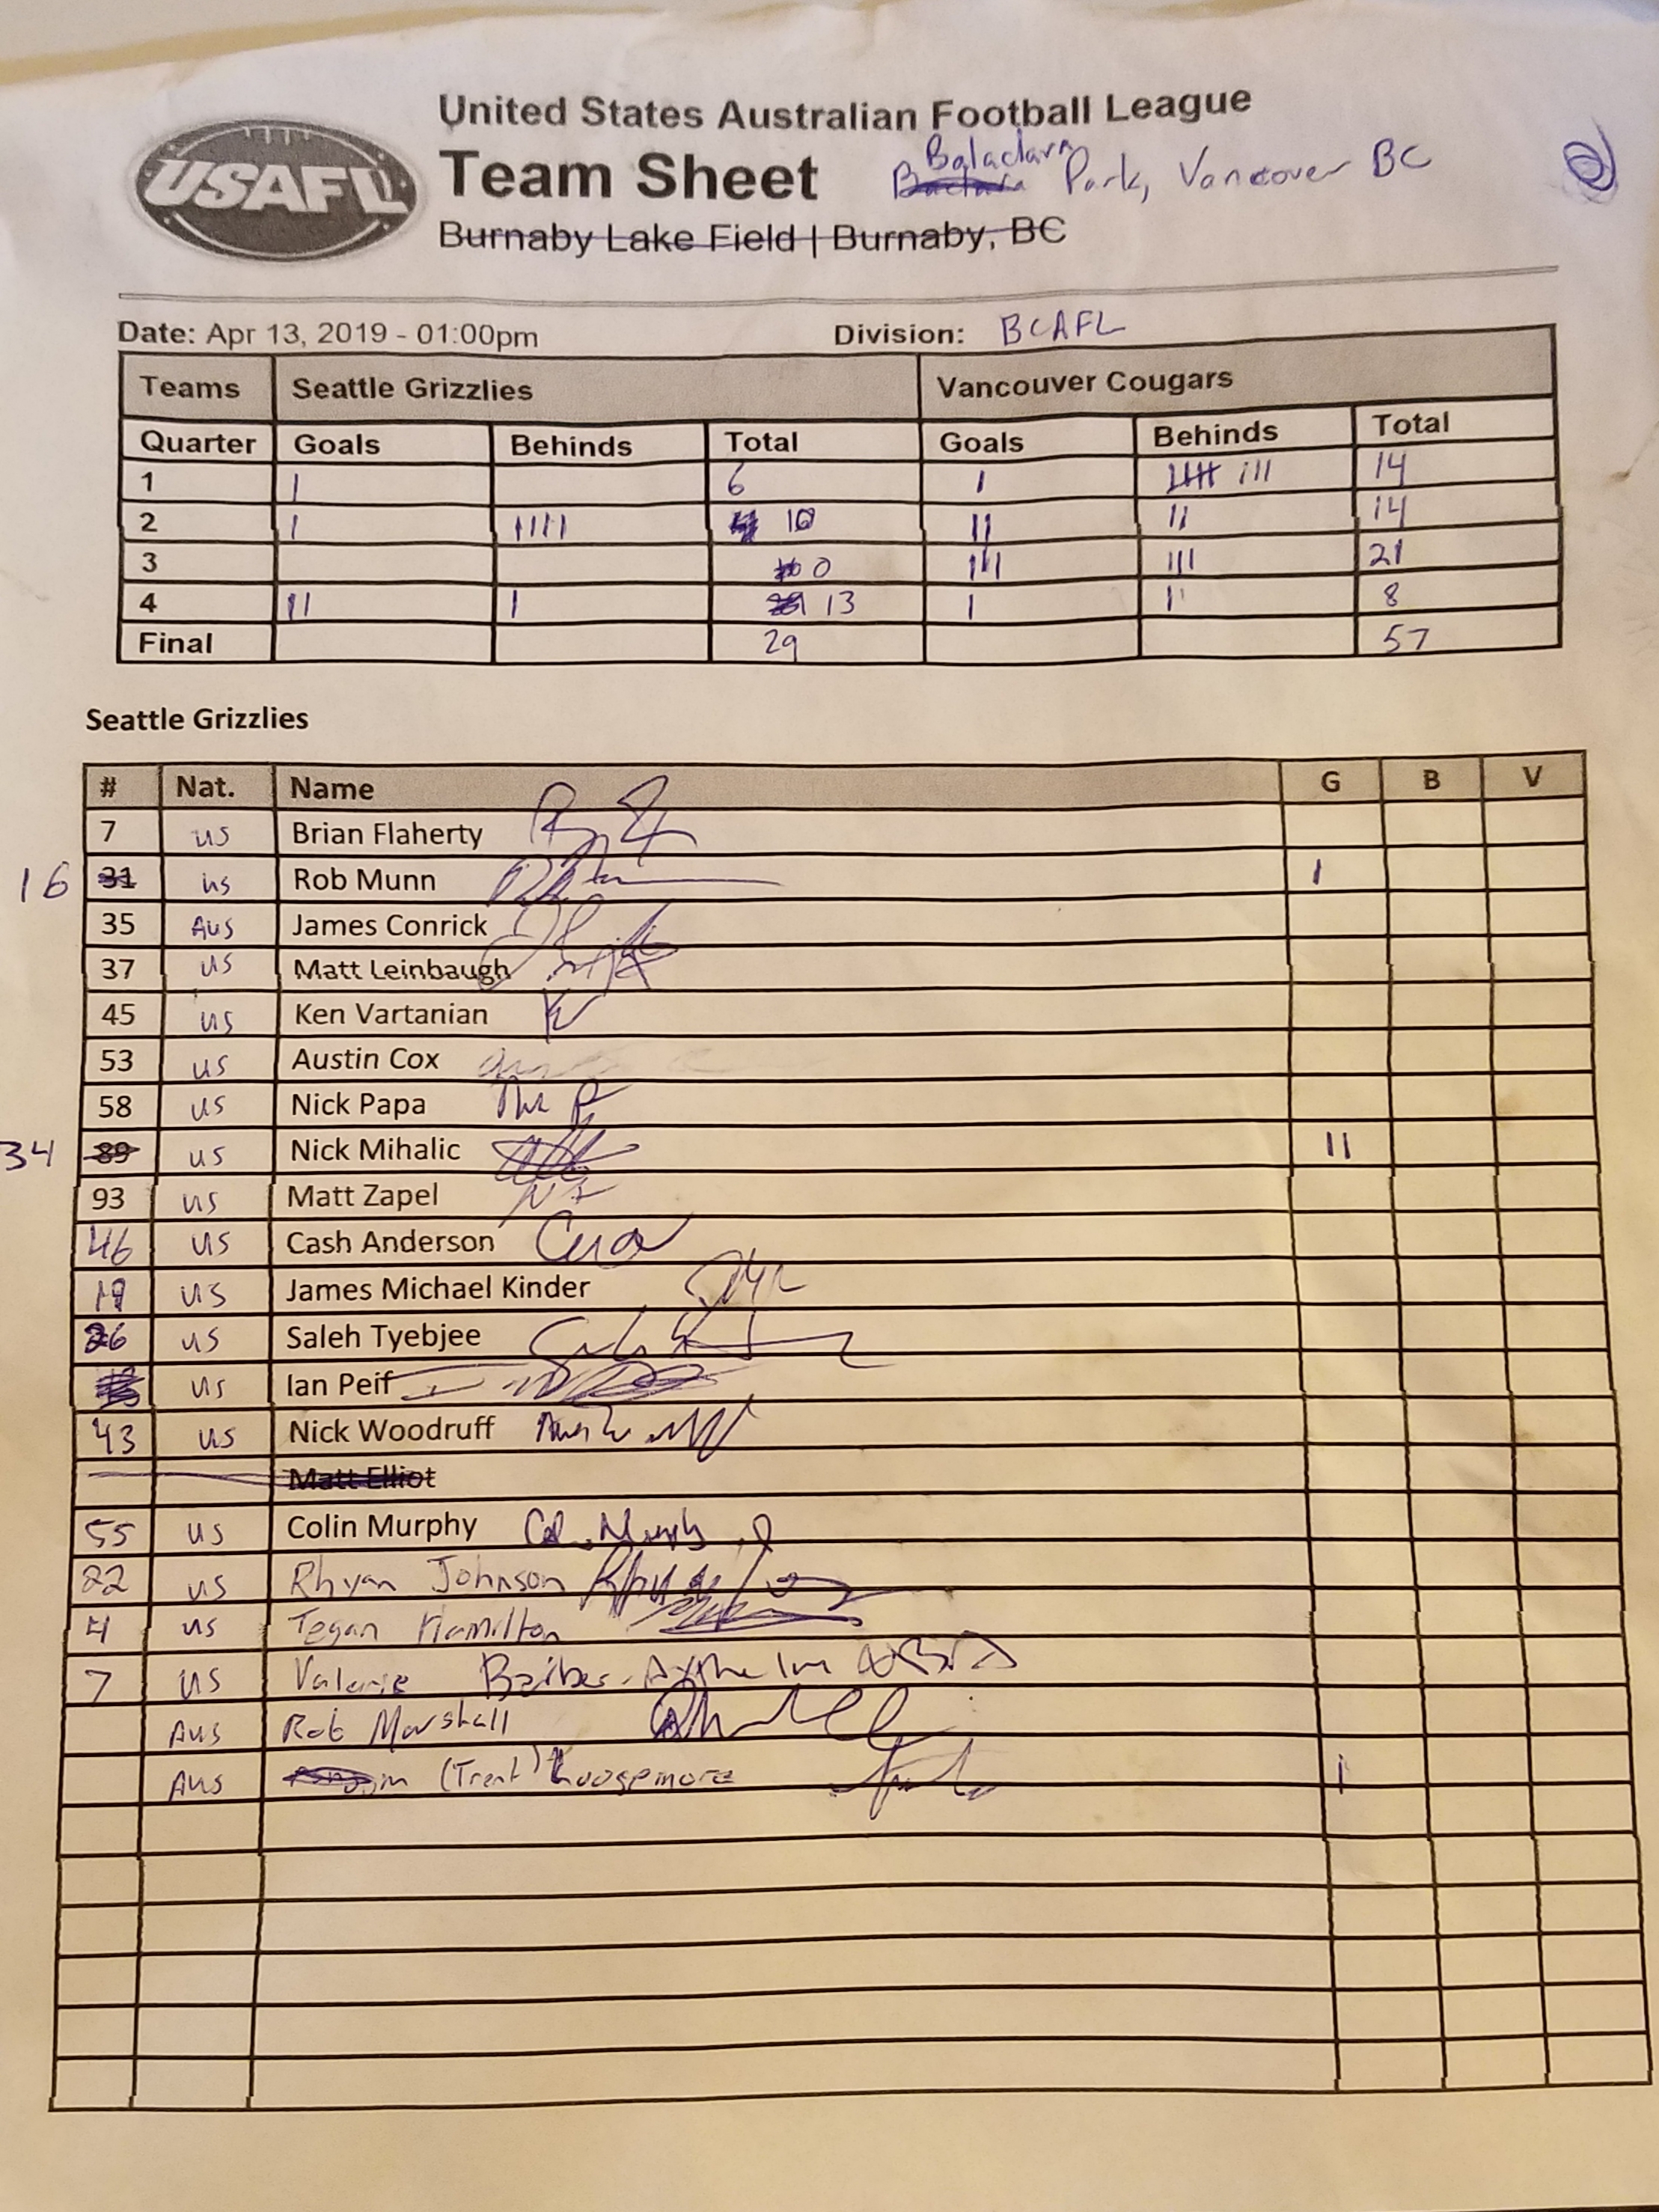 United States Australian Football League
USAFL
Team Sheet Balaclava Park, Vancover BC
Burnaby Lake Field | Burnaby, BC
Date: Apr 13, 2019 - 01:00pm Division: BCAFL
Teams Seattle Grizzlies Vancouver Cougars
Quarter Goals Behinds Total Goals Behinds Total
1 | 6 | |||| ||| 14
2 | |||| 10 || || 14
3 0 ||| ||| 21
4 || | 13 | || 8
Final 29 57
Seattle Grizzlies
# Nat. Name G B V
7 us Brian Flaherty
16 31 us Rob Munn |
35 Aus James Conrick
37 us Matt Leinbaugh
45 us Ken Vartanian
53 us Austin Cox
58 us Nick Papa
34 89 us Nick Mihalic ||
93 us Matt Zapel
46 us Cash Anderson
19 us James Michael Kinder
26 us Saleh Tyebjee
us Ian Peif
43 us Nick Woodruff
Matt Elliot
55 us Colin Murphy
22 us Rhyan Johnson
4 us Tegan Hamilton
7 us Valerie
Aus Rob Marshall
Aus (Trent) |